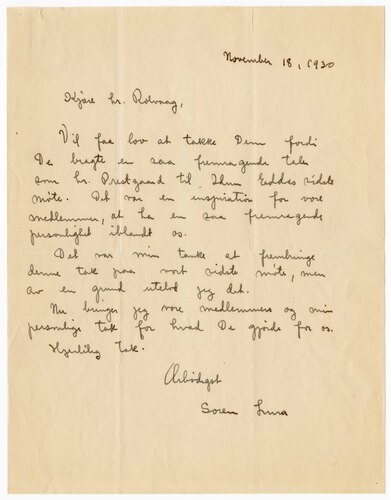 November 18, 1930
Kjære hr. Rolvaag,
Vil faa lov at takke Dem fordi
De bragte en saa fremragende taler
som hr. Prestgaard til Idun Eddas sidste
møte. Det var en inspiration for vore
medlemmer, at ha en saa fremragende
personlighet iblandt os.
Det var min tanke at frembringe
denne tak paa vort sidste møte, men
av en grund utelod jeg det.
Nu bringer jeg vore medlemmers og min
personlige tak for hvad De gjorde for os.
Hjertelig tak.
Ærbødigst
Soren